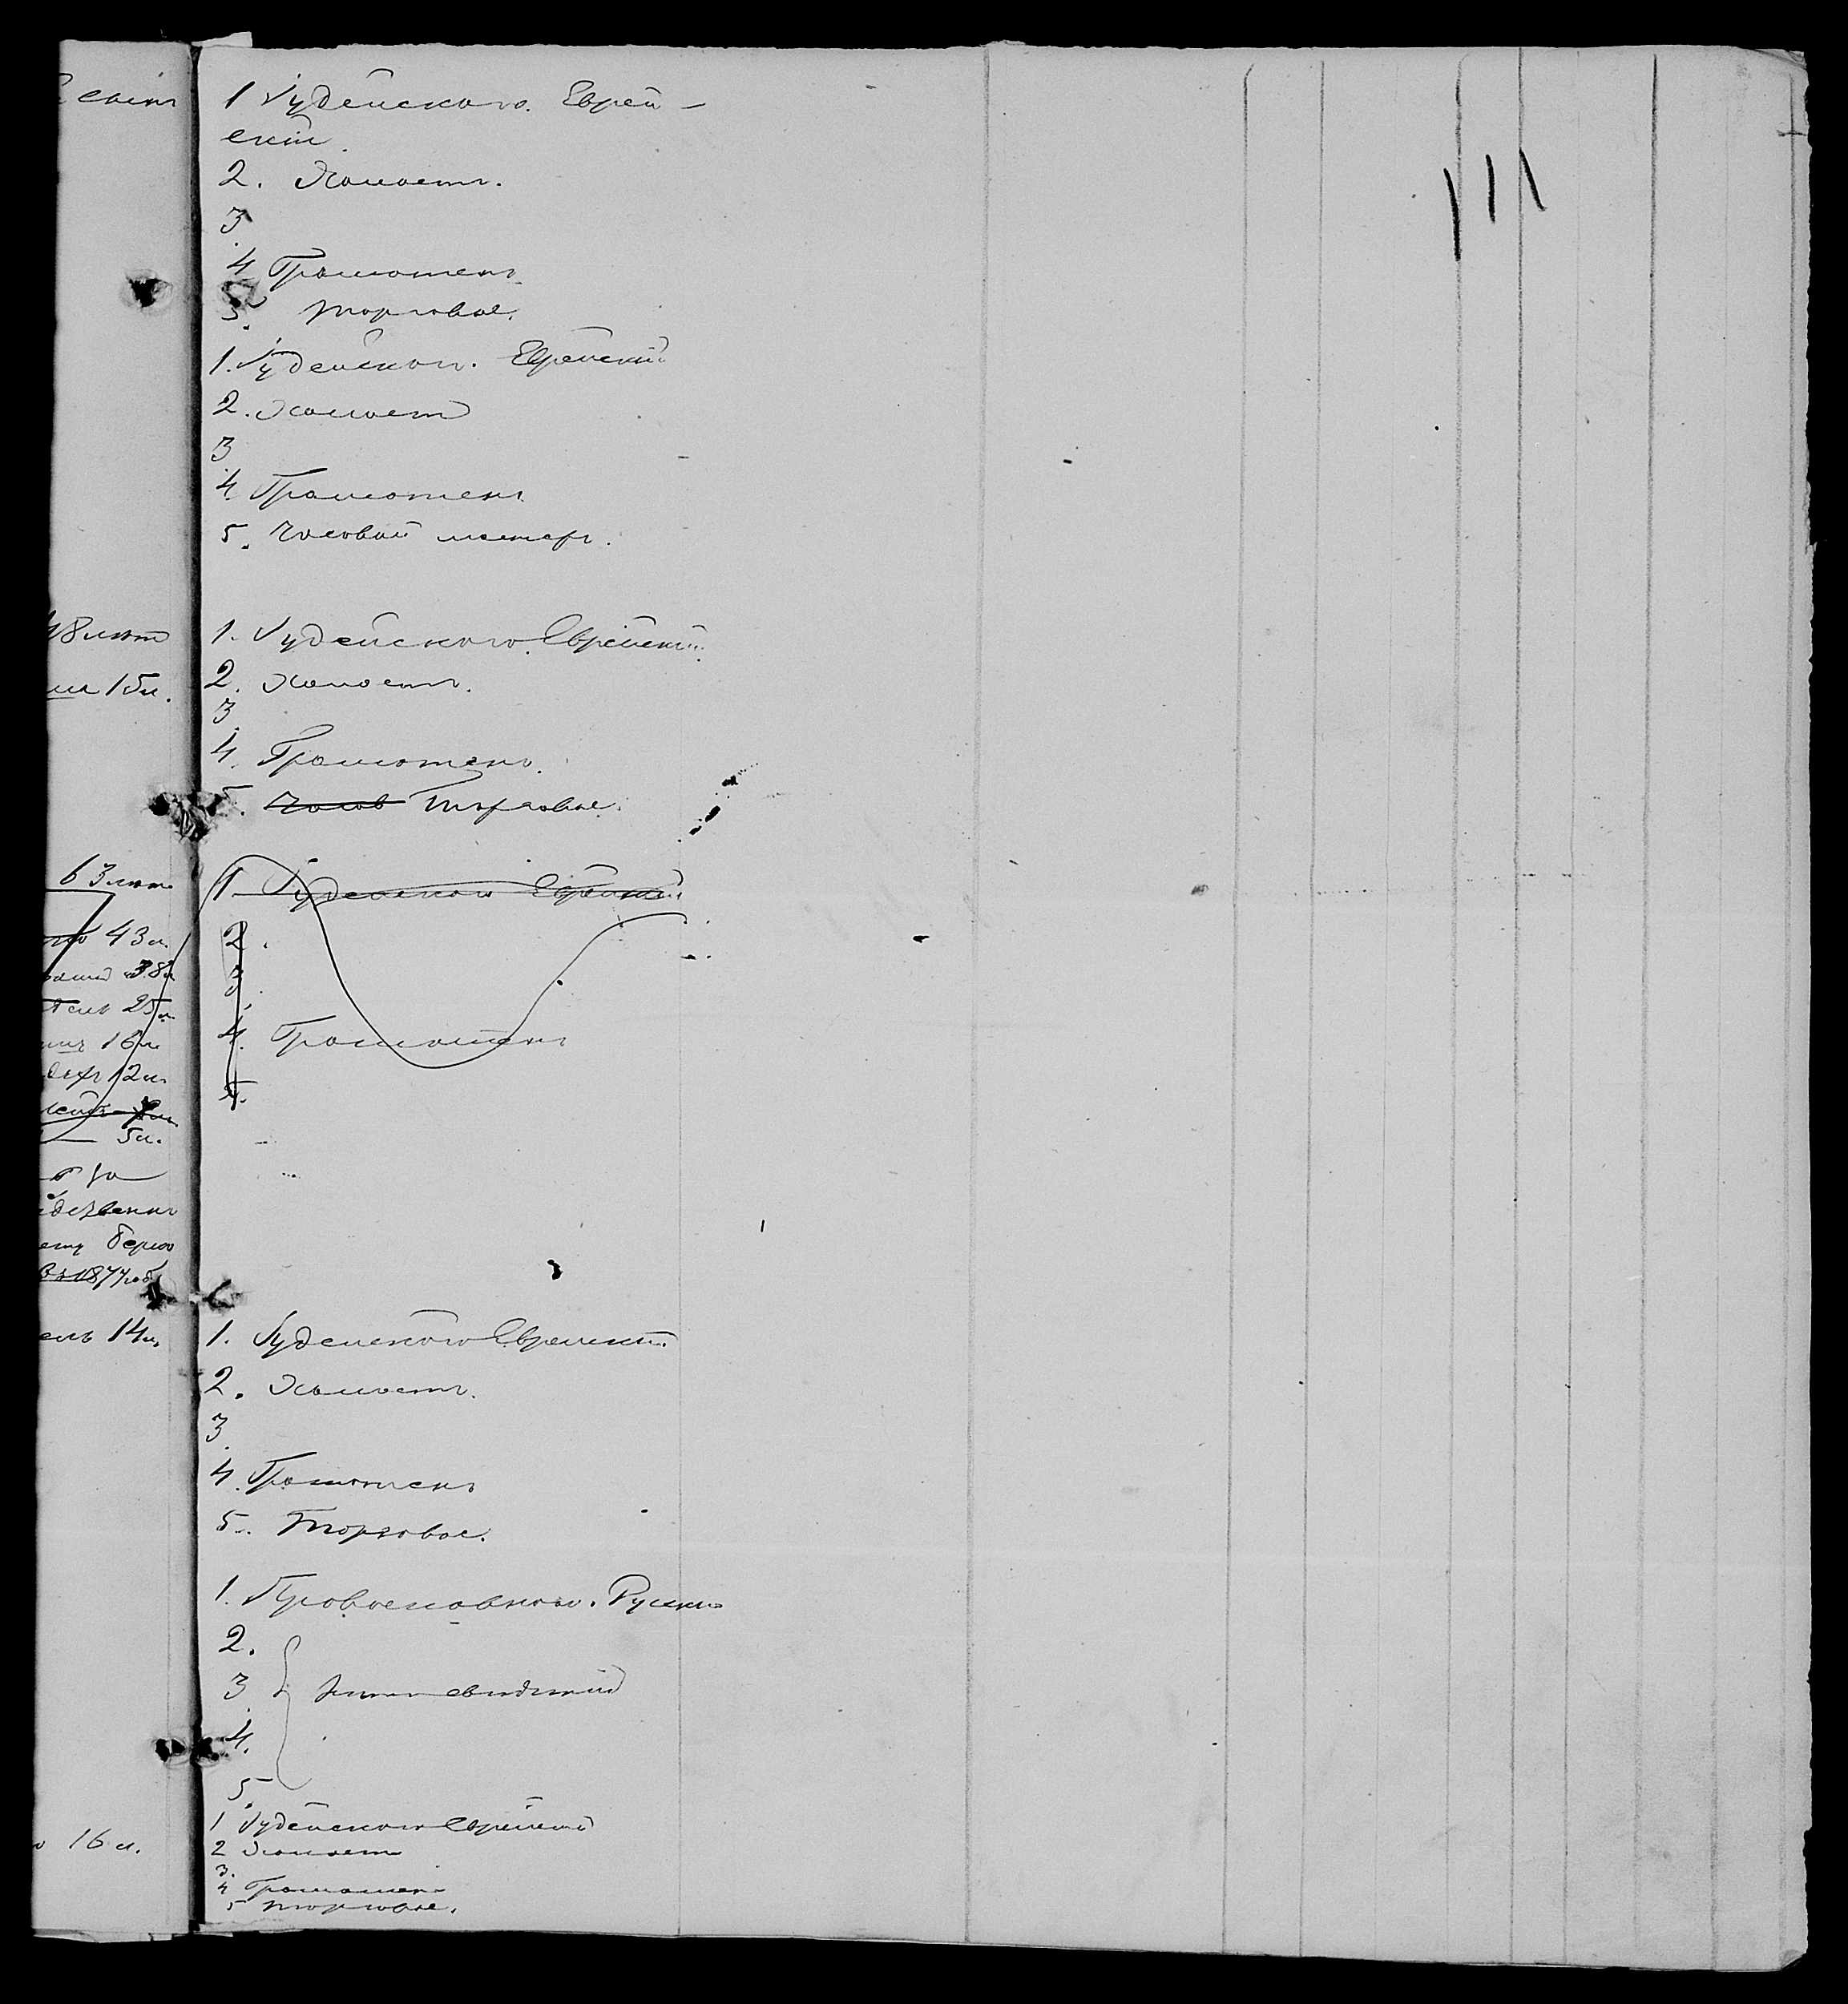 1 Іудейскаго. Еврей-
скій.
2. Холостъ.
3
4 Грамотенъ
5. торговля.
1. Іудейскаго. Еврейскій
2. Холостъ
3
4. Грамотенъ
5. Часовой мастеръ.
48 лѣтъ
15 л.
1. Іудейскаго. Еврейскій.
2. Холостъ.
3
4. Грамотенъ.
5. Часов Торговля.
63 лѣтъ
43 л.
38 л
25 л
16 л
12 л.
5 л.
1877 год
1. Іудейскаго Еврейскій
2.
3.
4. Грамотенъ
5.
14 л.
1. Іудейскаго Еврейскій.
2. Холостъ.
3.
4. Грамотенъ
5. Торговля.
1. Православнаго. Русскій
2.
3
4.
5.
16 л.
1 Іудейскаго Еврейскій
2 Холостъ
3.
4 Грамотенъ
5 торговля.